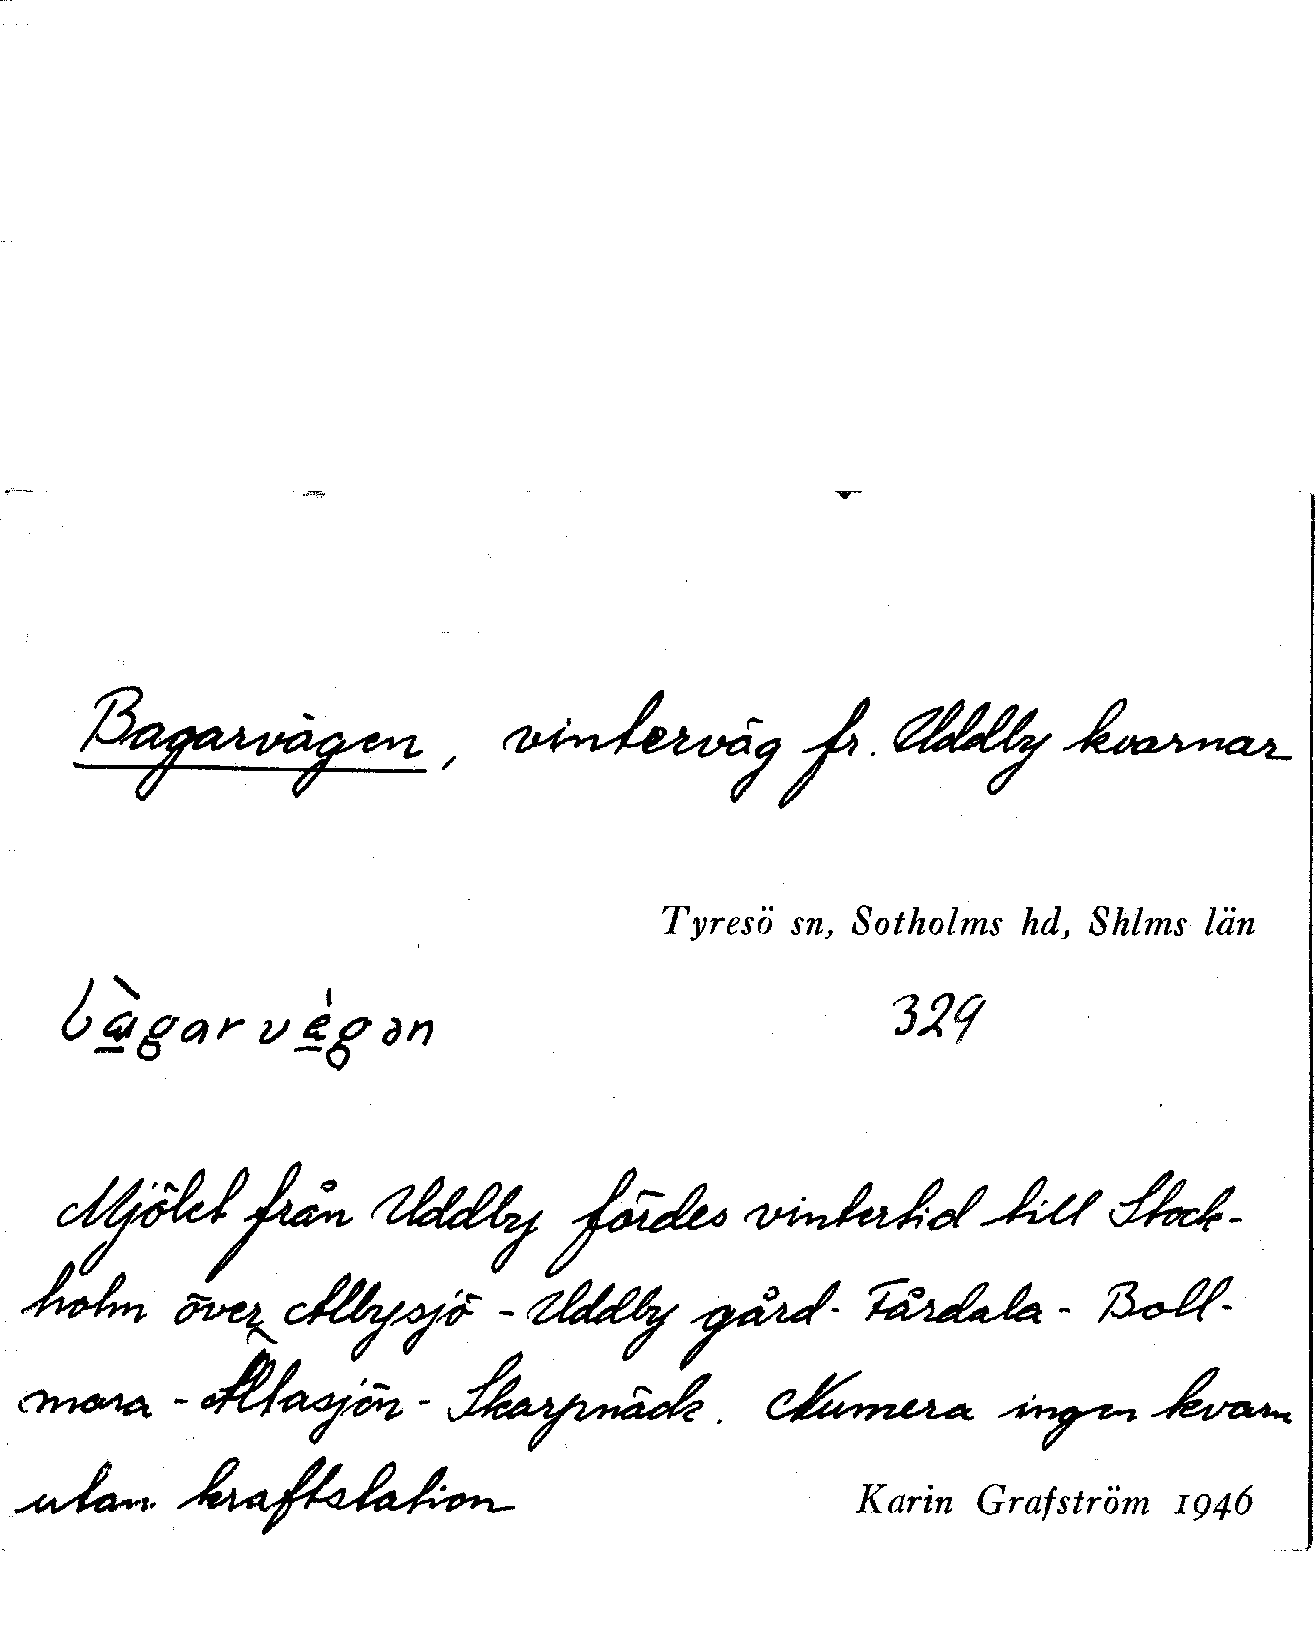 Bagarvägen, vinterväg fr. Uddby kvarnar
Tyresö sn, Sotholms hd, Shlms län
bàgarvégən 329
Mjölet från Uddby fördes vintertid till Stock-
holm över Albysjö - Uddby gård - Fårdala - Boll-
mora - Ältasjön - Skarpnäck. Numera ingen kvarn
utan kraftstation
Karin Grafström 1946